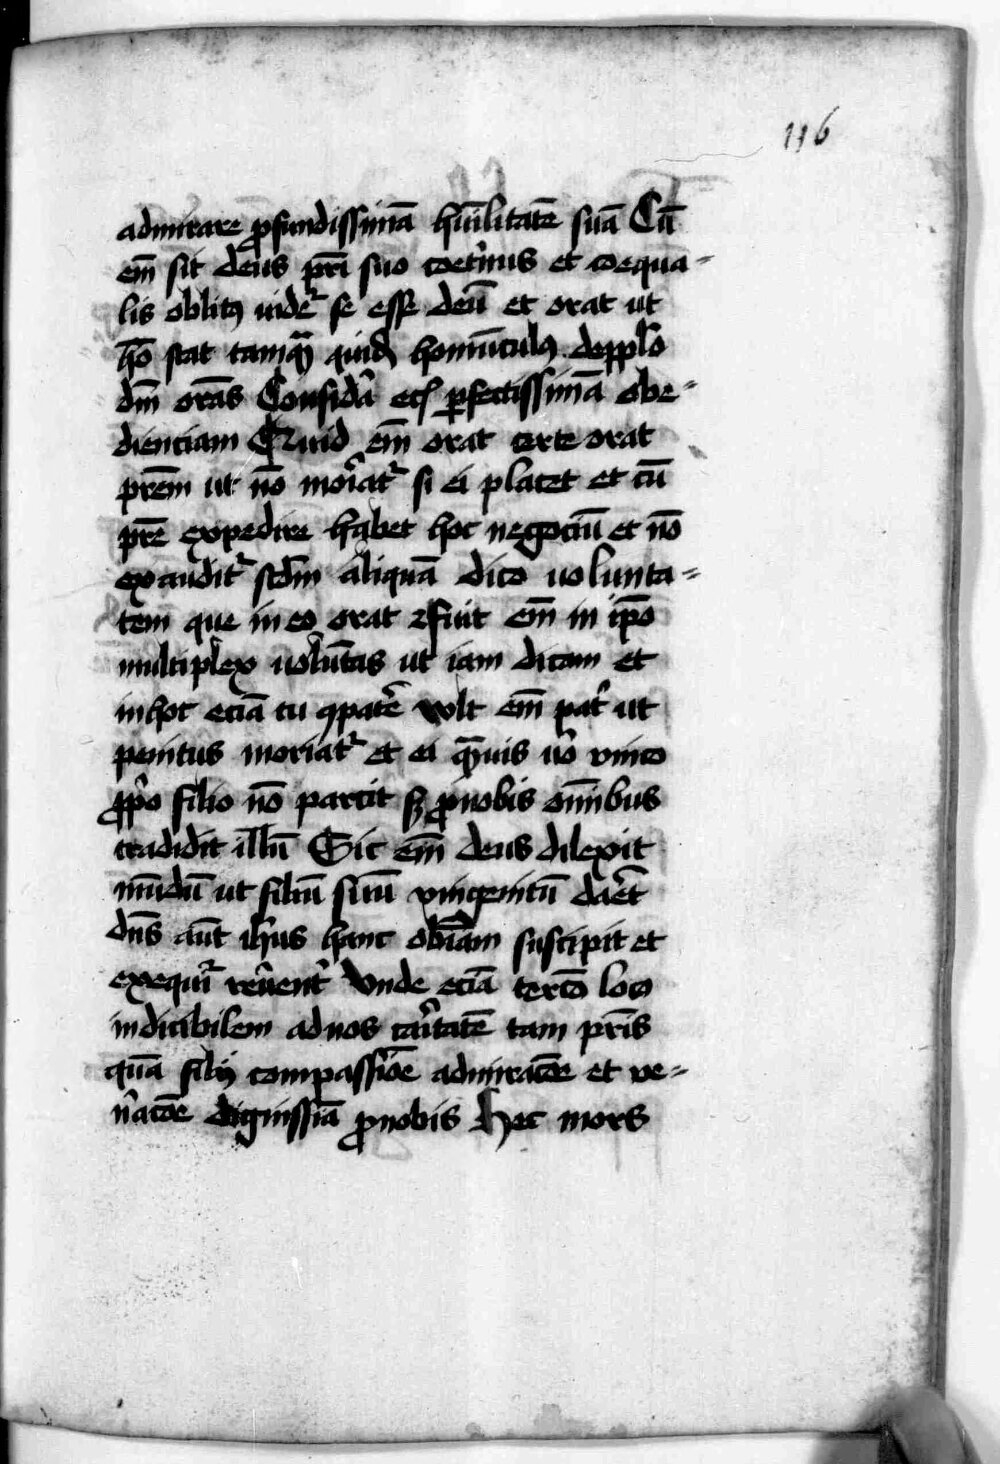 116
admirare ꝓfundissimā hūilitatē suā Cū
em̄ sit deus pr̄i suo coet͛nus et coequa-
lis oblitꝰ uidet͛ se esse deū et orat ut
hō stat tamqᷓ quidā homūculꝰ de ppl̄o
dm̄ orās Consid͛a ec̄ ꝑfectissimā obe-
dienciam Quid em̄ orat certe orat
pr̄em ut nō moriat͛ si ei placet et cū
pr̄e expedire habet hoc negociū et nō
exaudit͛ scdm̄ aliquā dico uolunta-
tem que in eo orat ꝯfuit em̄ in ip̄o
multiplex uolūtas ut iam dicam et
in hoc eciā tu ꝯpatē volt em̄ pat͛ ut
penitus moriat͛ et ei qᷓuis u͛o vnico
ꝓp͛o filio nō parcit sꝫ ꝓ nobis om̄ibus
tradidit illū Sic em̄ deus dilexit
mūdū ut filiū suū vnigenitū daret
dn̄s aūt ih̄us hanc obīam suscipit et
exequit͛ reu͛ent͛ Vnde eciā tercō loco
indicibilem ad nos caritatē tam pr̄is
quā filij compassiōe admiracōe et ve-
n͛acōe dignissīa ꝓ nobis Hec mors